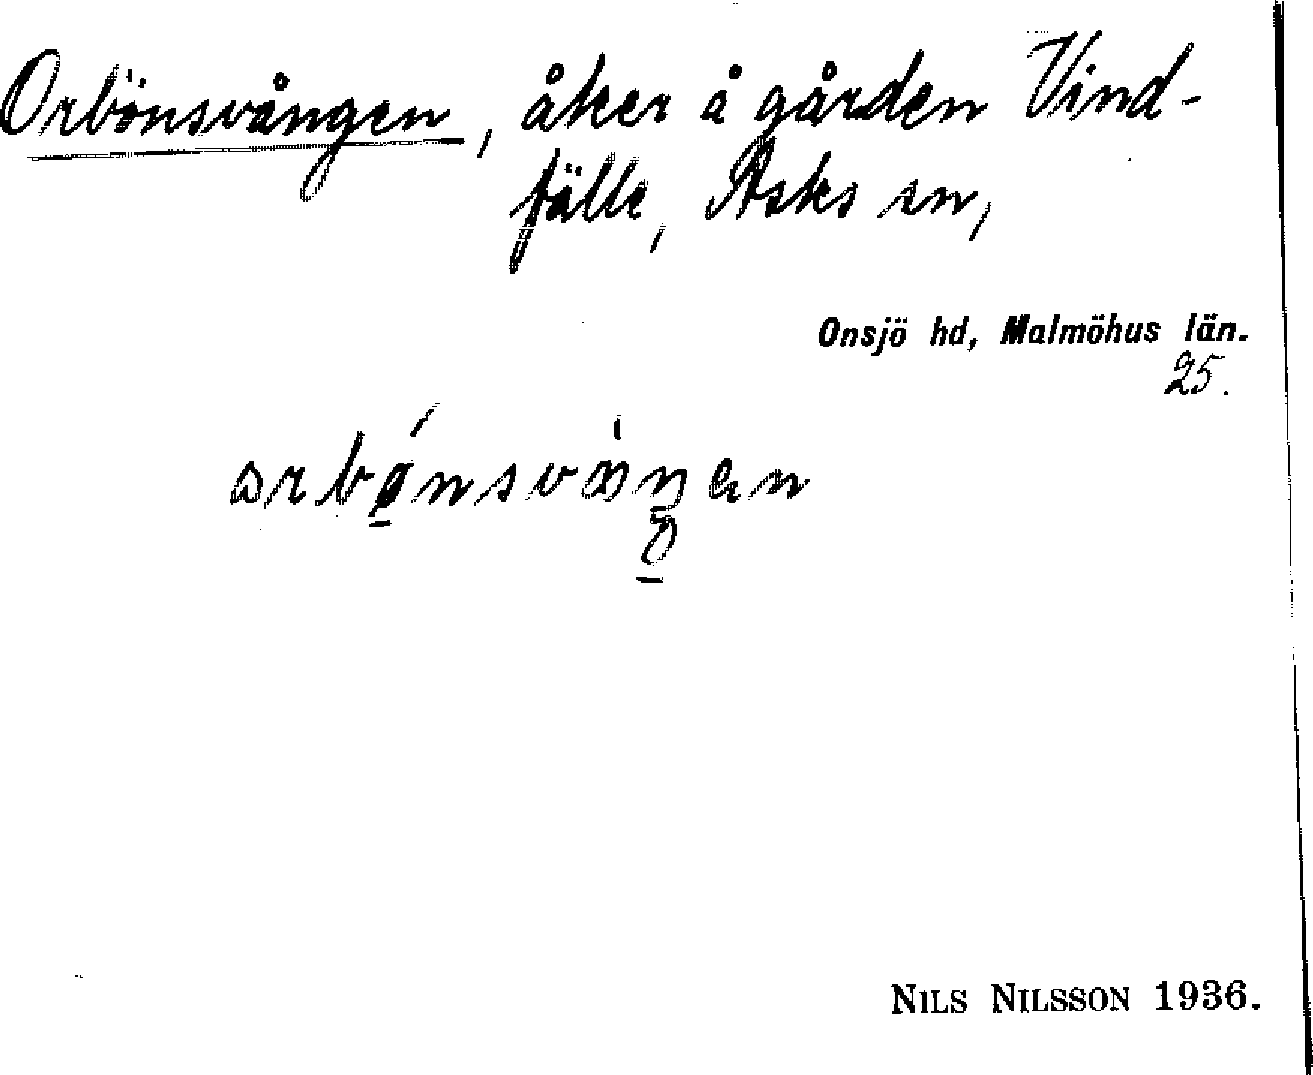 Orbönsvången, åker å gården Vind-
fälle, Asks sn,
Onsjö hd, Malmöhus län.
25.
NILS NILSSON 1936.